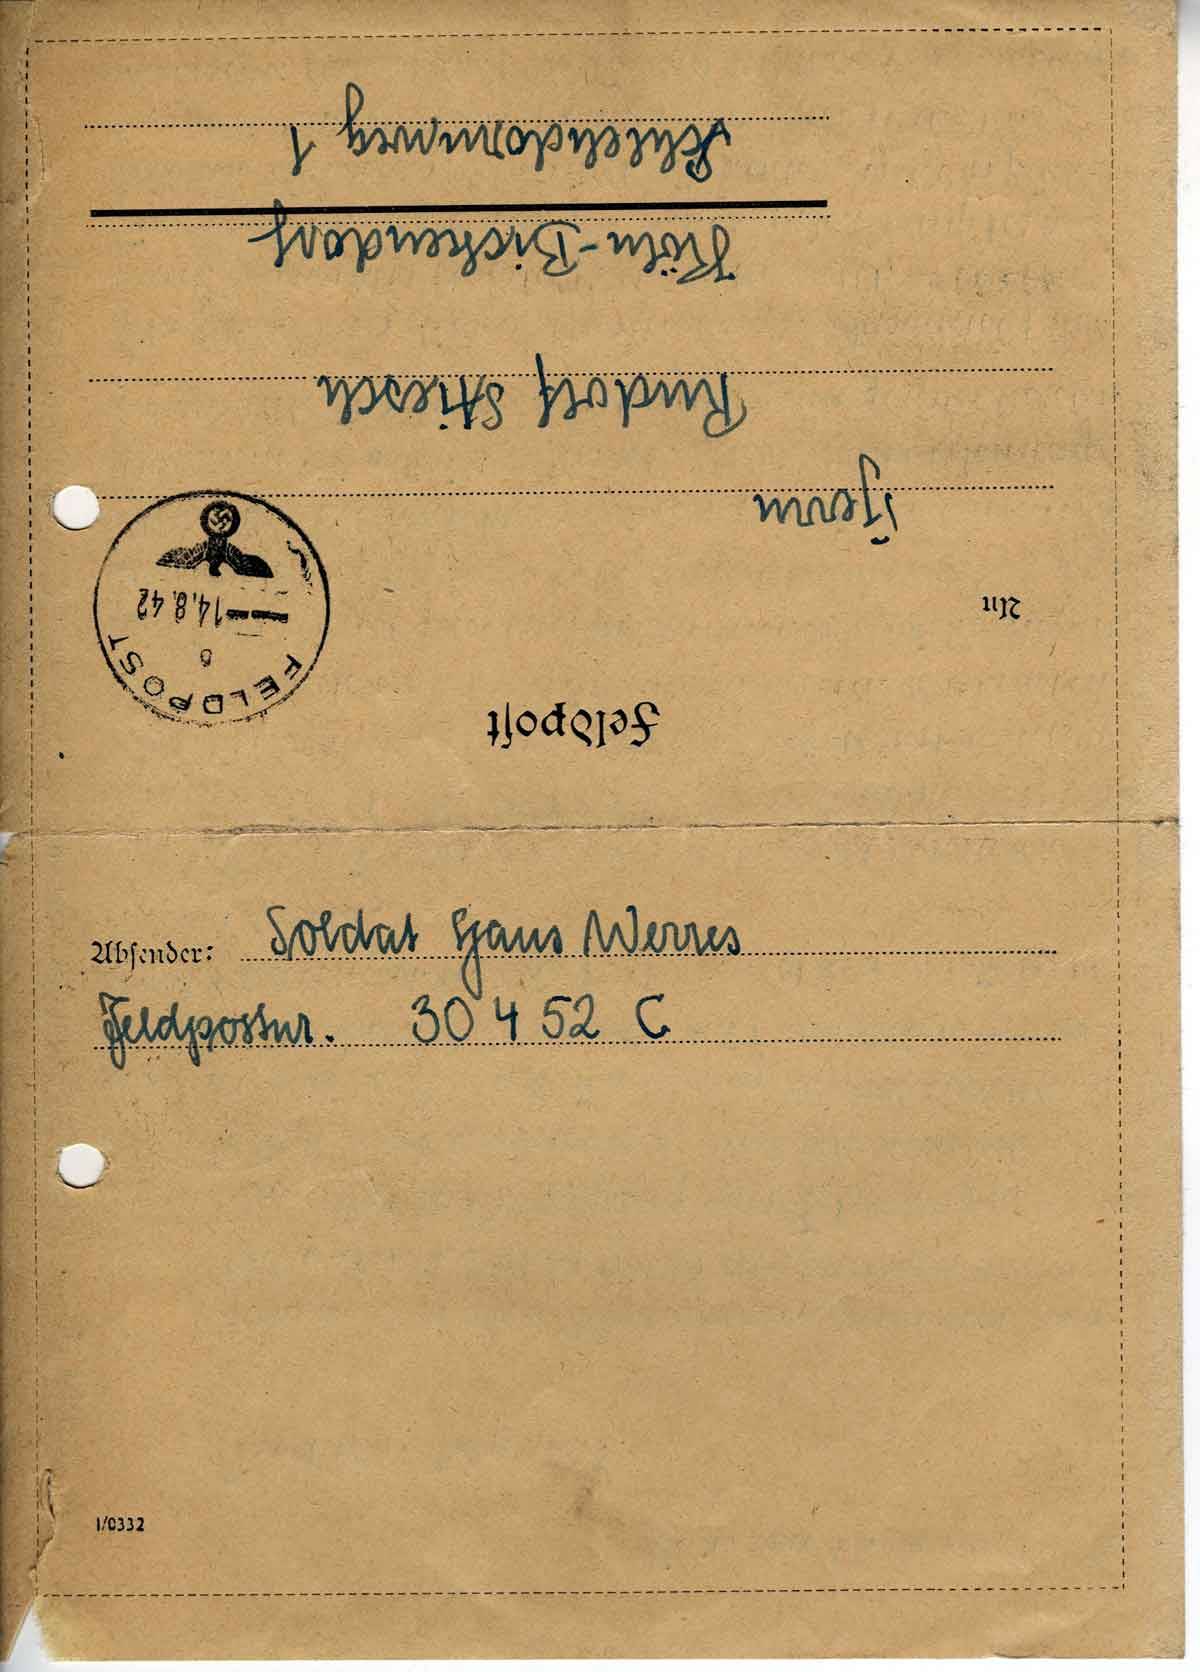 Feldpost
FELDPOST
6
14.8.42
An
Herrn
Rudolf Stiesch
Köln-Bickendorf
Schlehdornweg 1
Absender: Soldat Hans Werres
Feldpostnr. 30 452 C
I/0332